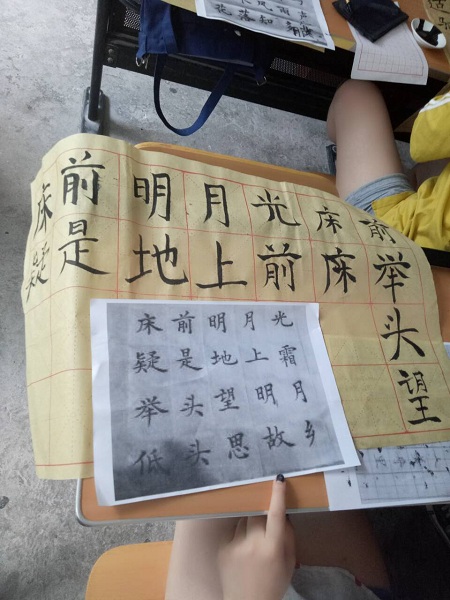 风雨声
花落知
床前明月光床前
疑是地上前床举
头
望
床前明月光
疑是地上霜
举头望明月
低头思故乡